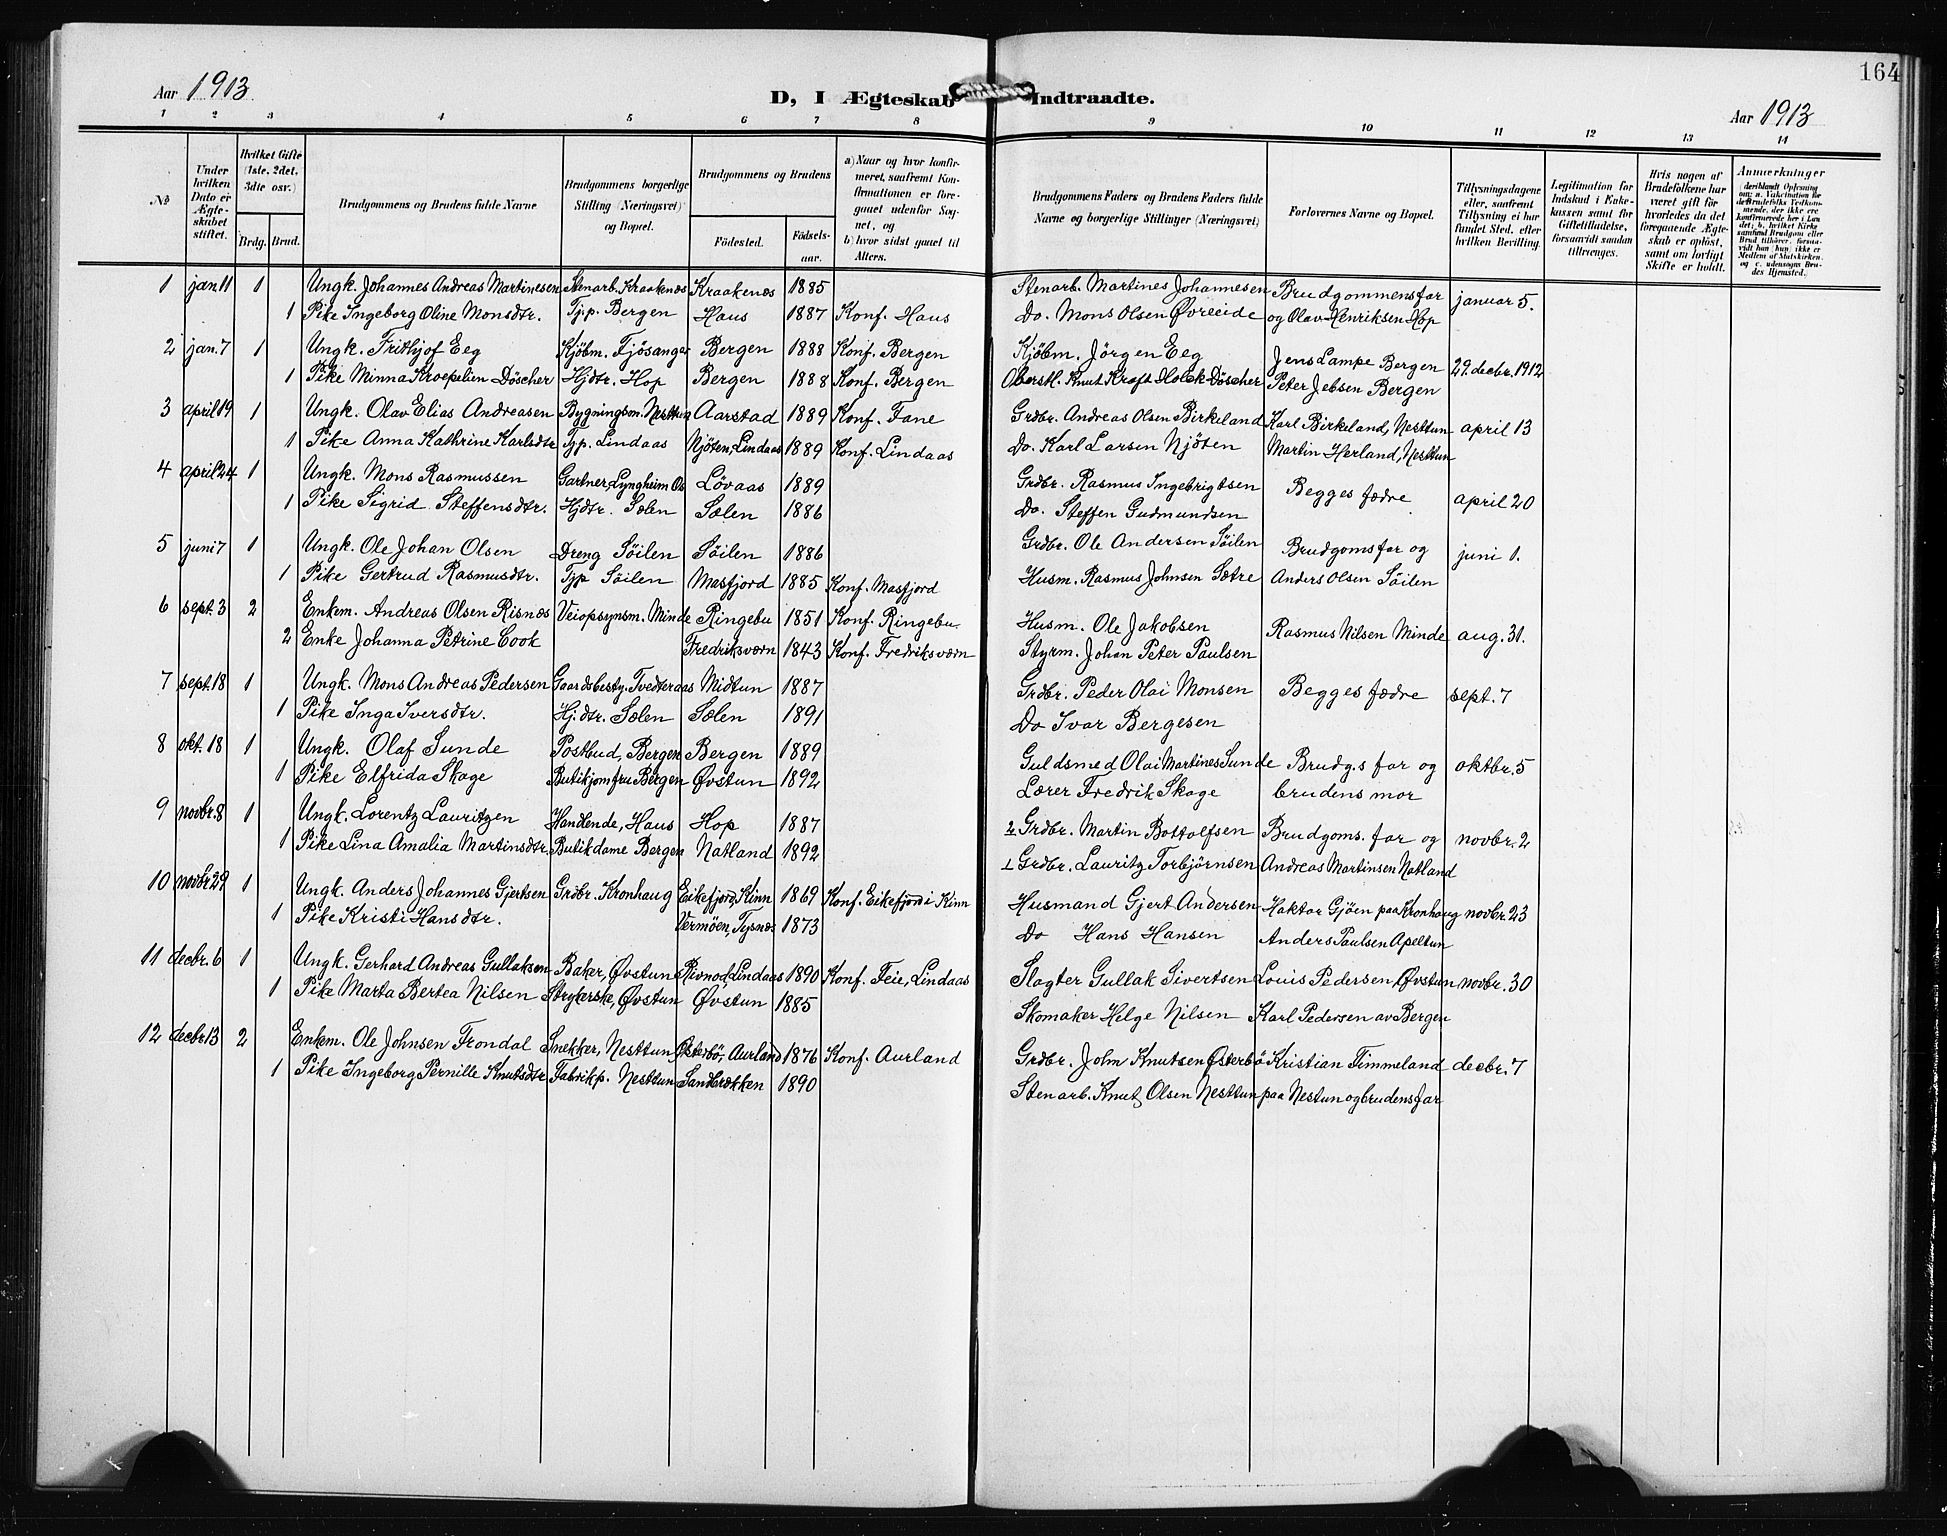 164
Aar 1913. D, I Ægteskab Indtraadte. Aar 1913
1 2 3 4 5 6 7 8 9 10 11 12 13 14
No
Under hvilken Dato er Ægteskabet stiftet.
Hvilket Gifte (1ste, 2det, 3die osv.)
Brdg. Brud.
Brudgommens og Brudens fulde Navne
Brudgommens borgerlige Stilling (Næringsvei) og Bopæl.
Brudgommens og Brudens
Fødested. Fødselsaar.
a) Naar og hvor konfirmeret, saafremt Konfirmationen er foregaaet udenfor Sognet, og
b) hvor sidst gaaet til Alters.
Brudgommens Faders og Brudens Faders fulde Navne og borgerlige Stillinger (Næringsvei)
Forlovernes Navne og Bopæl.
Tillysningsdagene eller, saafremt Tillysning ei har fundet Sted, efter hvilken Bevilling.
Legitimation for Indskud i Enkekassen samt for Giftetilladelse, forsaavidt saadan tiltrænges.
Hvis nogen af Brudefolkene har været gift før hvorledes da det foregaaende Ægteskab er opløst, samt om lovligt Skifte er holdt.
Anmærkninger
1 jan. 11 1 Ungk. Johannes Andreas Martinesen Stenarb. Kraakenæs Kraakenæs 1885 Stenarb. Martines Johannesen Brudgommens far januar 5.
1 Pike Ingeborg Oline Monsdtr. Tj.p. Bergen Haus 1887 Konf. Haus Do. Mons Olsen Øvreeide og Olav Henriksen Hop
2 jan. 7 1 Ungk. Frithjof Eeg Kjøbm. Fjøsanger Bergen 1888 Konf. Bergen Kjøbm. Jørgen Eeg Jens Lampe Bergen 29. decbr. 1912
1 Pike Minna Kroepelien Döscher Hjdtr. Hop Bergen 1888 Konf. Bergen Oberstl. Knut Kraft Holck Döscher Peter Jebsen Bergen
3 april 19 1 Ungk. Olav Elias Andreasen Bygningsm. Nesttun Aarstad 1889 Konf. Fane Grdbr. Andreas Olsen Birkeland Karl Birkeland, Nesttun april 13
1 Pike Anna Kathrine Karlsdtr Typ. Lindaas Njøten, Lindaas 1889 Konf. Lindaas Do. Karl Larsen Njøten Martin Herland, Nesttun
4 april 24 1 Ungk. Mons Rasmussen Gartner, Lyngheim Os Løvaas 1889 Grdbr. Rasmus Ingebrigtsen Begges fædre april 20
1 Pike Sigrid Steffensdtr. Hjdtr. Sælen Sælen 1886 Do. Steffen Gudmundsen
5 juni 7 1 Ungk. Ole Johan Olsen Dreng Søilen Søilen 1886 Grdbr. Ole Andersen Søilen Brudgoms far og juni 1.
1 Pike Gertrud Rasmusdtr. Tjp Søilen Masfjord 1885 Konf. Masfjord Husm. Rasmus Johnsen Sætre Anders Olsen Søilen
6 sept. 3 2 Enkem. Andreas Olsen Risnæs Veiopsynsm. Minde Ringebu 1851 Konf. Ringebu. Husm. Ole Jakobsen Rasmus Nilsen Minde aug. 31.
2 Enke Johanna Petrine Cook Fredriksværn 1843 Konf. Fredriksværn Styrm. Johan Peter Paulsen
7 sept. 18 1 Ungk. Mons Andreas Pedersen Gaardsbesty. Tvedteraas Midtun 1887 Grdbr. Peder Olai Monsen Begges fædre sept. 7
1 Pike Inga Iversdtr. Hj.dtr. Sælen Sælen 1891 Do Ivar Bergesen
8 okt. 18 1 Ungk. Olaf Sunde Postbud, Bergen Bergen 1889 Guldsmed Olai Martines Sunde Brudg.s far og oktbr. 5
1 Pike Elfrida Skage Butikjomfru Bergen Øvstun 1892 Lærer Fredrik Skage brudens mor
9 novbr. 8 1 Ungk. Lorentz Lauritzen Handlende, Haus Hop 1887 2. Grdbr. Martin Bottolfsen Brudgoms. far og novbr. 2
1 Pike Lina Amalia Martinsdtr. Butikdame Bergen Natland 1892 1 Grdbr. Lauritz Torbjørnsen Andreas Martinsen Natland
10 novbr 29 1 Ungk. Anders Johannes Gjertsen Grdbr. Kronhaug Eikefjord, Kinn 1869 Konf. Eikefjord i Kinn Husmand Gjert Andersen Haktor Gjøen paa Kronhaug novbr. 23
1 Pike Kristi Hansdtr. Vermøen, Tysnæs 1873 Do Hans Hansen Anders Paulsen Apeltun
11 decbr. 6 1 Ungk. Gerhard Andreas Gullaksen Baker, Øvstun Rivnod, Lindaas 1890 Konf. Feie, Lindaas Slagter Gullak Sivertsen Louis Pedersen, Øvstun novbr. 30
1 Pike Marta Bertea Nilsen Strykerske, Øvstun Øvstun 1885 Skomaker Helge Nilsen Karl Pedersen av Bergen
12 decbr. 13 2 Enkem. Ole Johnsen Frondal Snekker, Nesttun Østerbø, Aurland 1876 Konf. Aurland Grdbr. John Knutsen Østerbø Kristian Fimmeland decbr. 7
1 Pike Ingeborg Pernille Knutsdtr Fabrikp. Nesttun Sandbrekken 1890 Stenarb. Knut Olsen Nesttun paa Nestun og brudens far